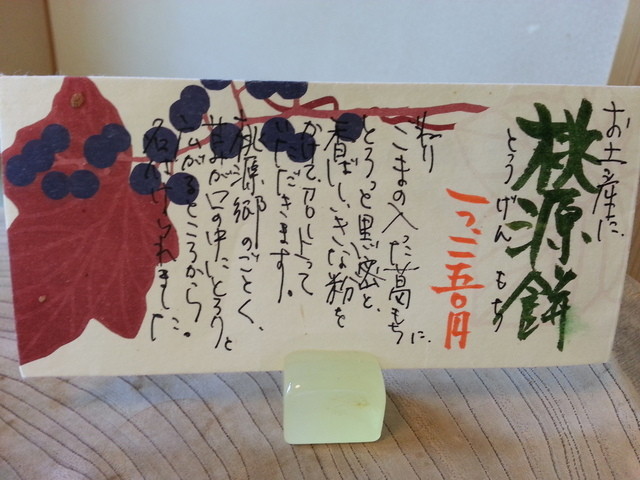 お土産に
桃源餅
とうげんもち
一つ、二五〇円
練り
ごまの入った葛もちに
とろっと黒蜜と、
香ばしいきな粉を
かけて召し上って
いただきます。
桃源郷のごとく、
甘みが口の中にとろりと
広がるところから
名付けられました。